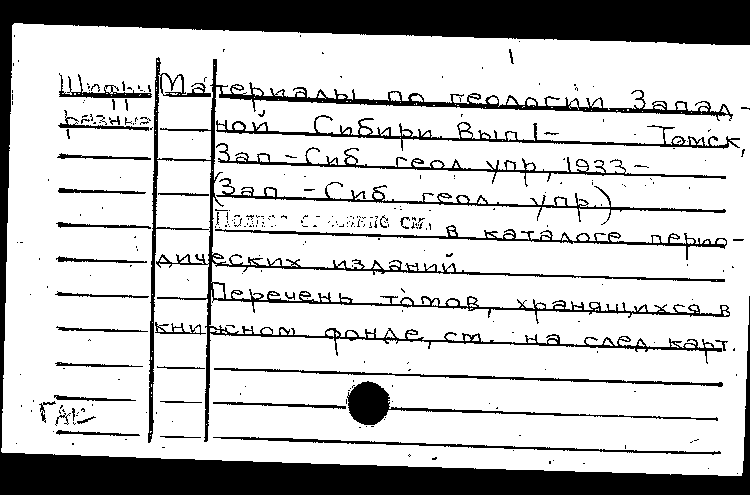 1
Шифры Материалы по геологии Запад-
разные ной Сибири. Вып 1- Томск,
Зап-Сиб. геол. упр, 1933-
(Зап-Сиб. геол. упр.)
Полное описание см. в каталоге перио-
дических изданий.
Перечень томов, хранящихся в
книжном фонде, см. на след карт.
ГАК